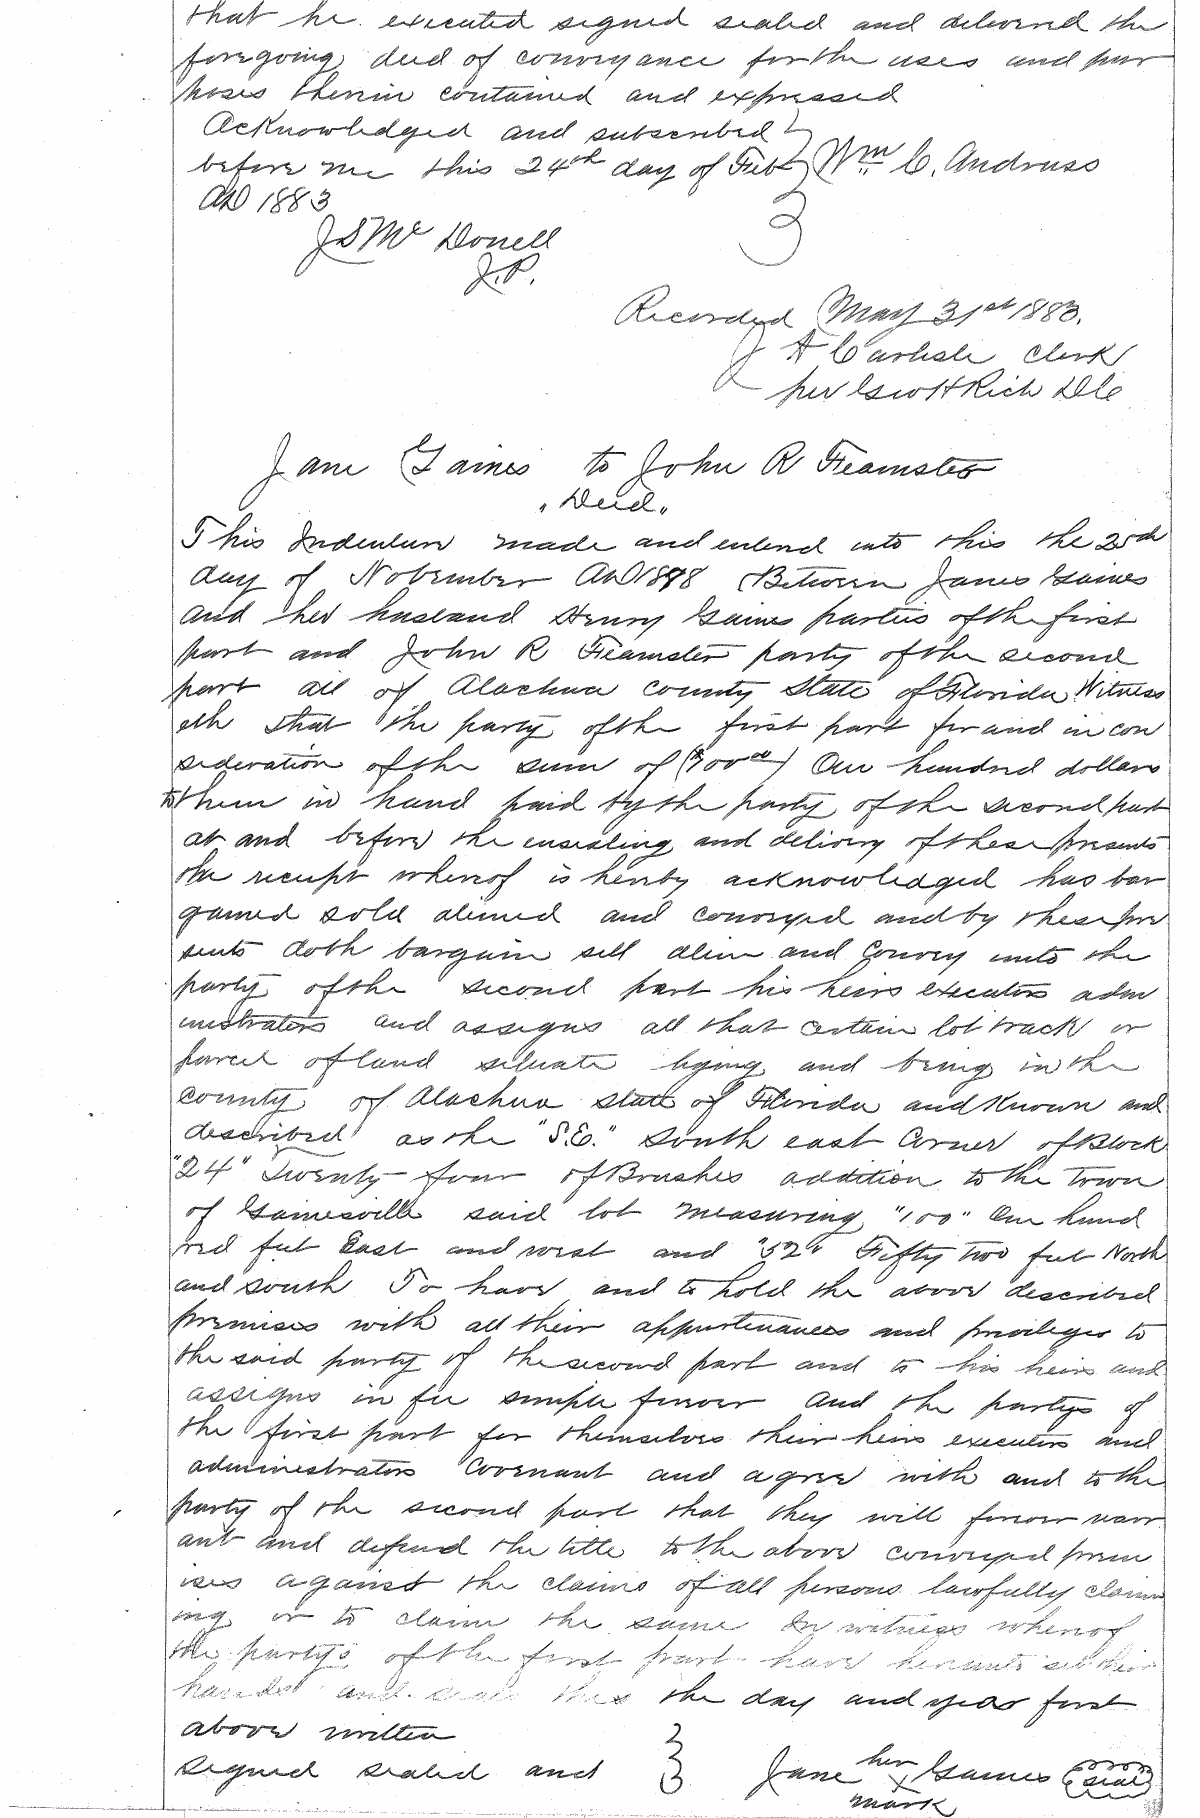 that he executed signed sealed and delivered the
foregoing deed of conveyance for the uses and pur
poses therein contained and expressed
Acknowledged and subscribed
before me this 24th day of Feb Wm C. Andruss
AD 1883
J S Mc Donell
J.P.
Recorded May 31st 1883.
J A Carlisle Clerk
per Geo H Rich D C
Jane Gaines to John R Feamster
"Deed"
This Indenture made and entered into this the 25th
day of November AD 1878 Between Janes Gaines
and her husband Henry Gaines parties of the first
part and John R Feamster party of the second
part all of Alachua County State of Florida Witness
eth that the party of the first part for and in con
sideration of the sum of ($100 00) One hundred dollars
to them in hand paid by the party of the second part
at and before the ensealing and delivery of these presents
the receipt whereof is hereby acknowledged has bar
gained sold aliened and conveyed and by these pre
sents doth bargain sell alien and Convey unto the
party of the second part his heirs executors adm
inistrators and assigns all that certain lot track or
parcel of land situate lying and being in the
County of Alachua State of Florida and Known and
described as the "S.E." South east Corner of Block
"24" Twenty four of Brushes addition to the Town
of Gainesville said lot measuring "100" One hund
red feet East and west and "52" Fifty two feet North
and south To have and to hold the above described
premises with all their appurtenances and privileges to
the said party of the second part and to his heirs and
assigns in fee simple forever And the partys of
the first part for themselves their heirs executors and
administrators Covenant and agree with and to the
party of the second part that they will forever warr
ant and defend the title to the above conveyed prem
ises against the claims of all persons lawfully claim
ing or to claim the same In witness whereof
the partys of the first part have hereunto set their
hands and seals this the day and year first
above written
Signed sealed and Jane her x mark Gaines seal